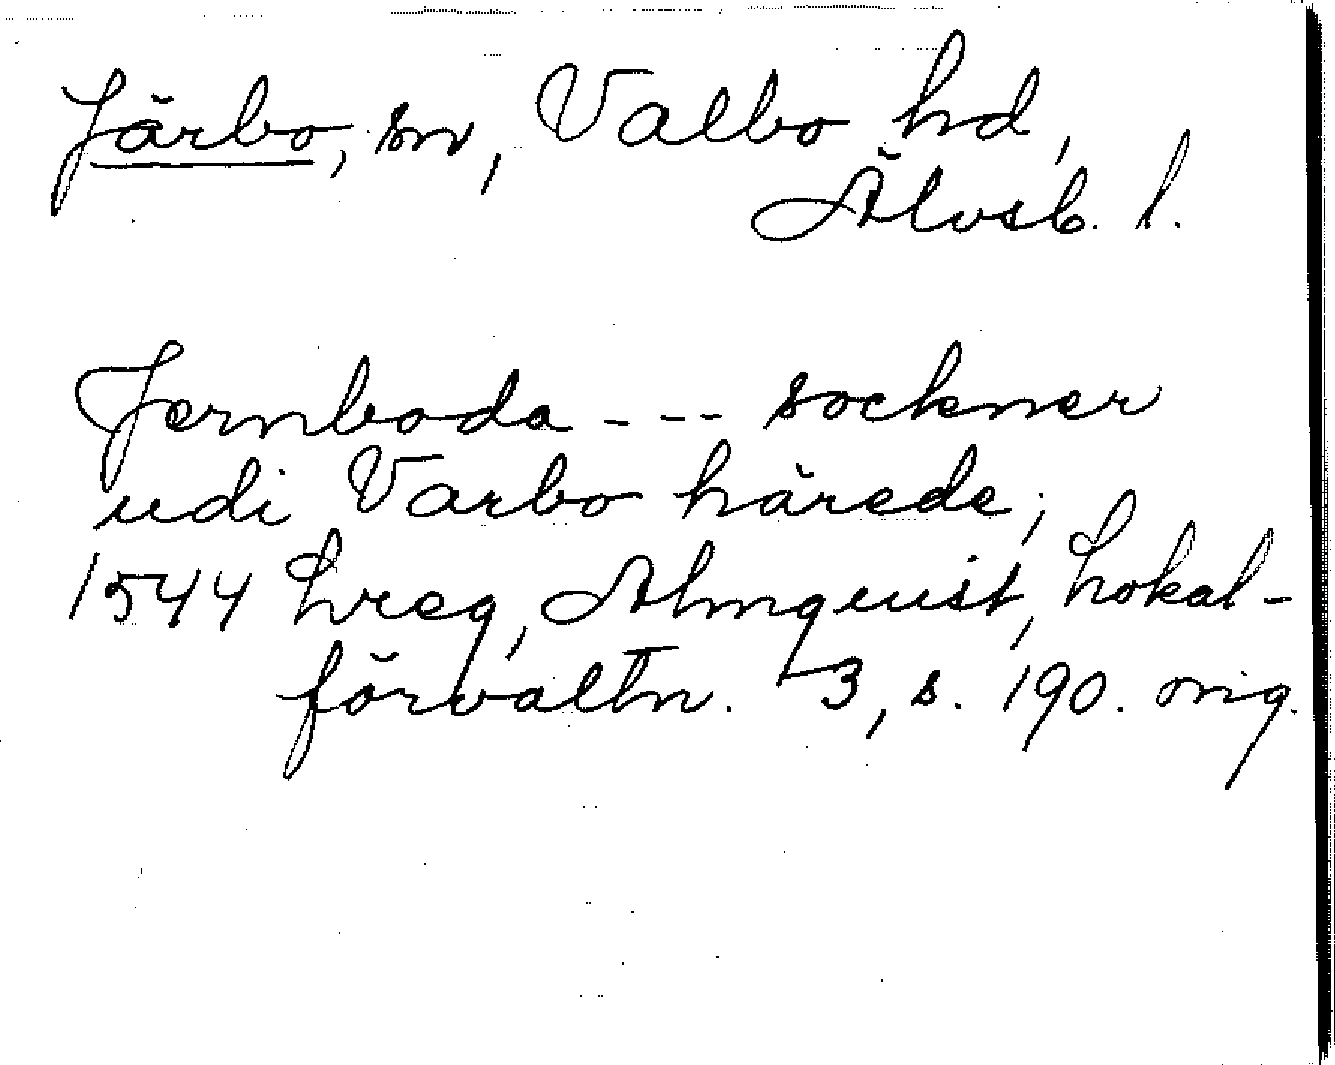 Järbo, sn, Valbo hd,
Älvsb. l.
Jernboda --- sockner
udi Varbo härede;
1544 Lreg, Almquist, Lokal-
förvaltn. 3, s. 190. orig.